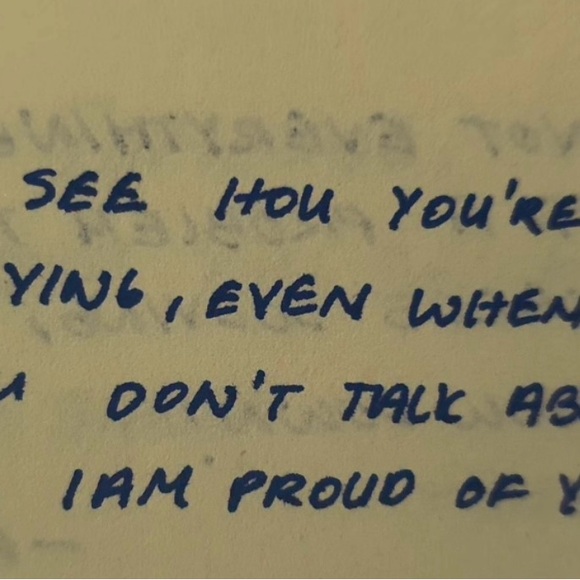 SEE HOW YOU'RE
YING, EVEN WHEN
DON'T TALK AB
I AM PROUD OF Y